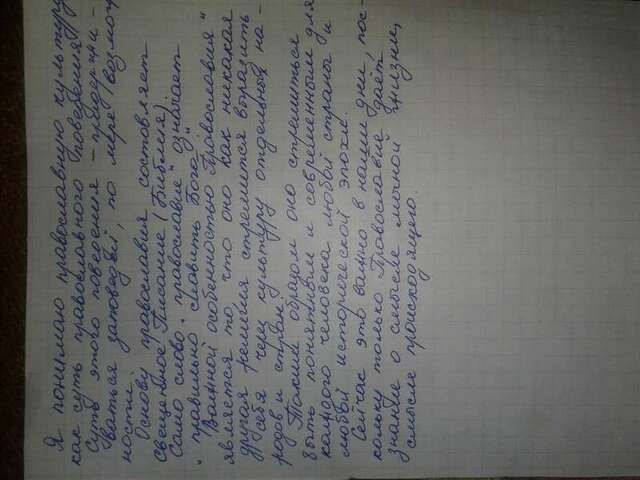 Я понимаю православную культуру
как суть православного поведения.
Суть этого поведения – придержи-
ваться заповедей, по мере возмож
ности.
Основу православия составляет
священное Писание (Библия).
Само слово "православие" означает
"правильно славить Бога".
Важной особенностью "Православия"
является то, что оно как никакая
другая религия стремится выразить
себя через культуру отдельных на-
родов и стран.
Таким образом оно стремиться
быть понятным и современным для
каждого человека любой страны и
любой исторической эпохи.
Сейчас это важно в наши дни, пос-
кольку только Православие даёт
знание о смысле личной жизни,
смысле происходящего.